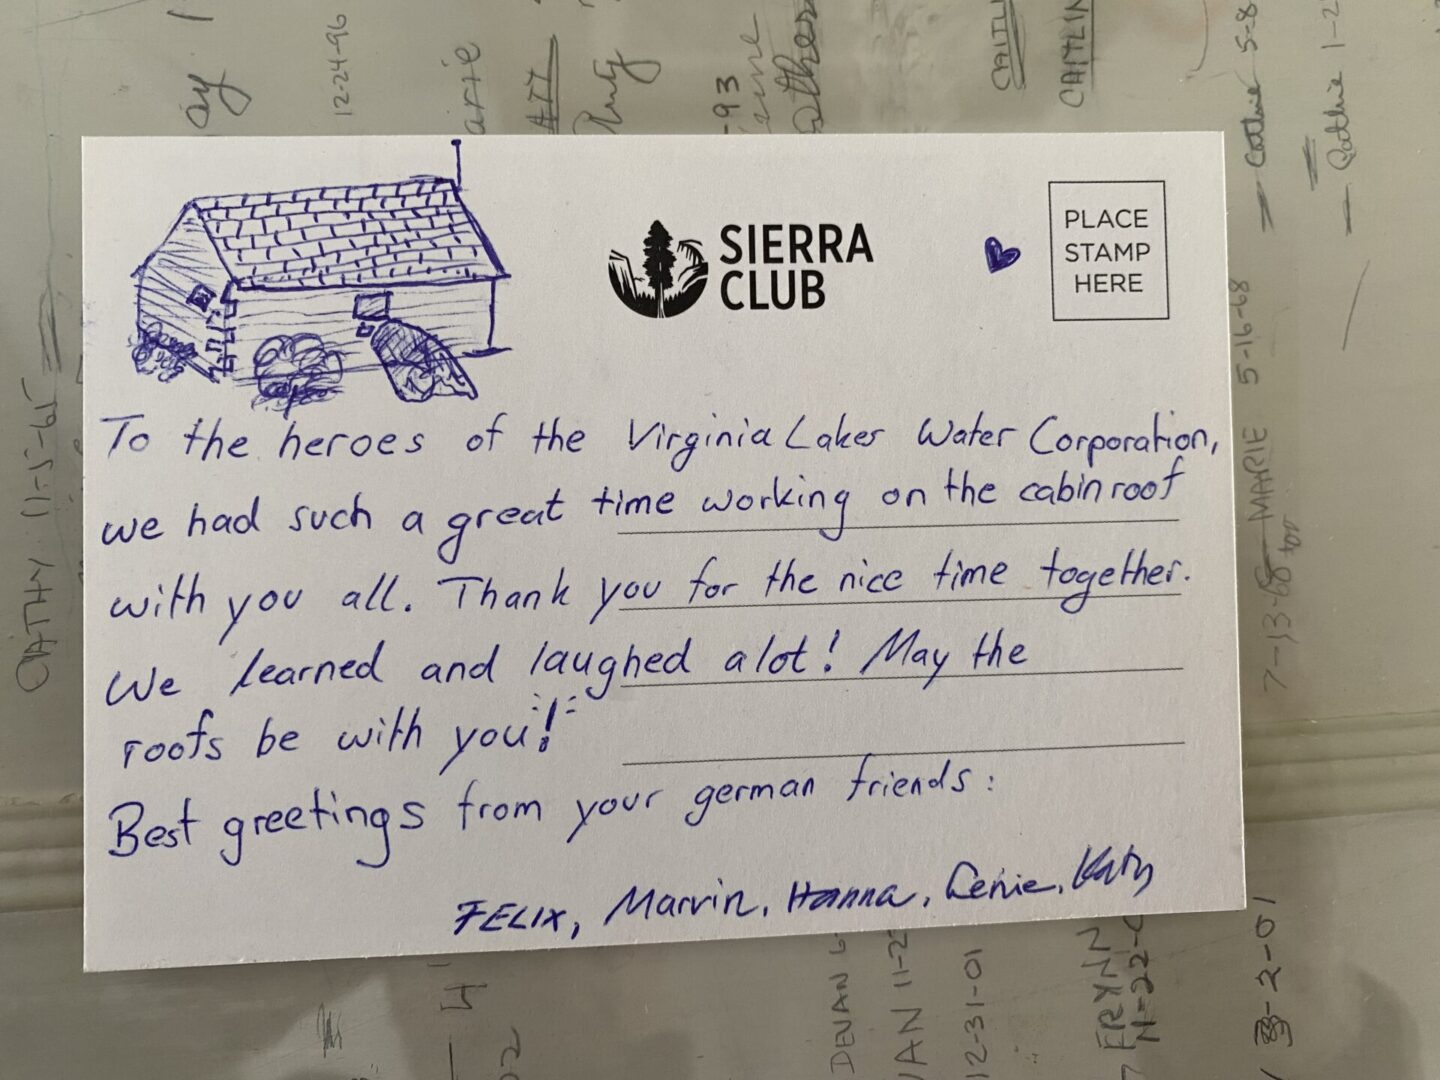 12-24-96
arie
ATT
-93
CAITLIN
Cathie 5-8
1-2
CATHY 11-5-65
SIERRA
CLUB
PLACE
STAMP
HERE
To the heroes of the Virginia Lakes Water Corporation,
we had such a great time working on the cabin roof
with you all. Thank you for the nice time together.
We learned and laughed a lot! May the
roofs be with you!
Best greetings from your german friends:
FELIX, Marvin, Hanna,
MARIE 5-16-68
7-13-68
DEVAN
12-31-01